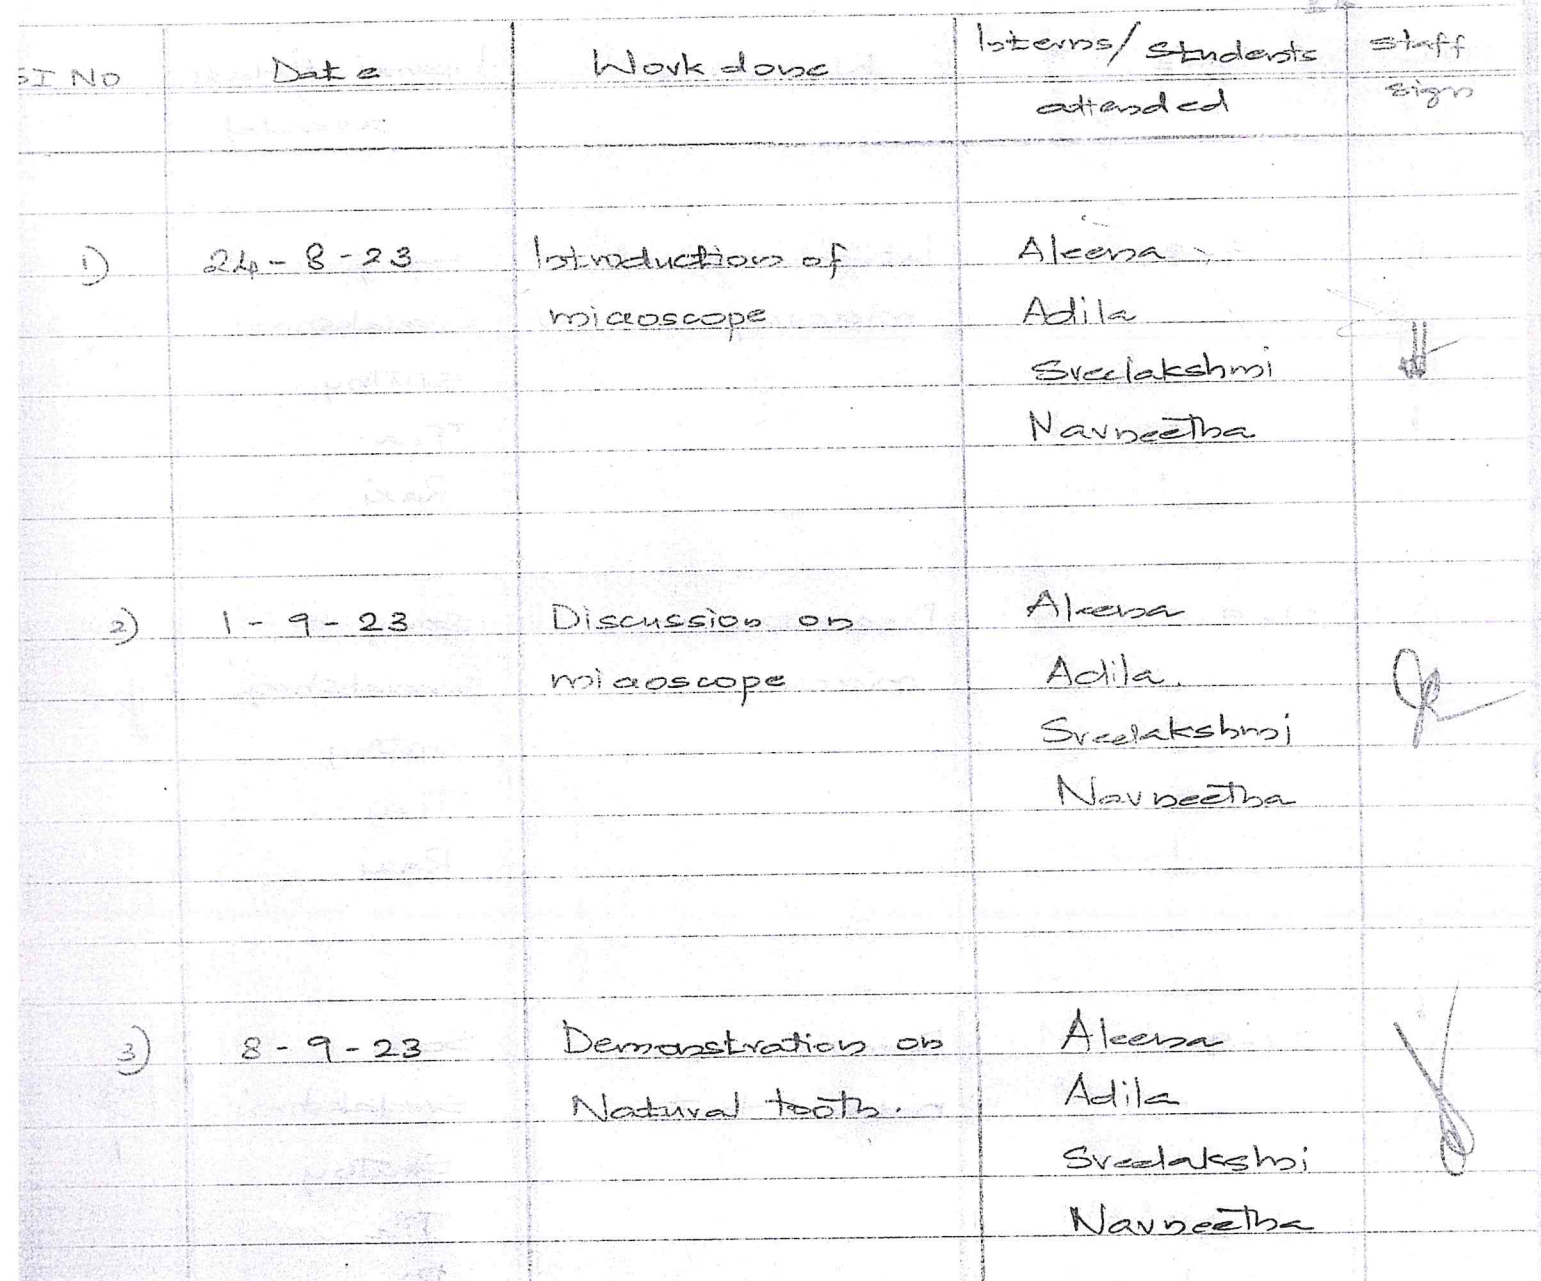 Sl No Date Work done Interns/ Students attended Staff Sign
1) 24-8-23 Introduction of Aleena
microscope Adila
Sreelakshmi
Navneetha
2) 1-9-23 Discussion on Aleena
microscope Adila.
Sreelakshmi
Navneetha
3) 8-9-23 Demonstration on Aleena
Natural tooth. Adila
Sreelakshmi
Navneetha